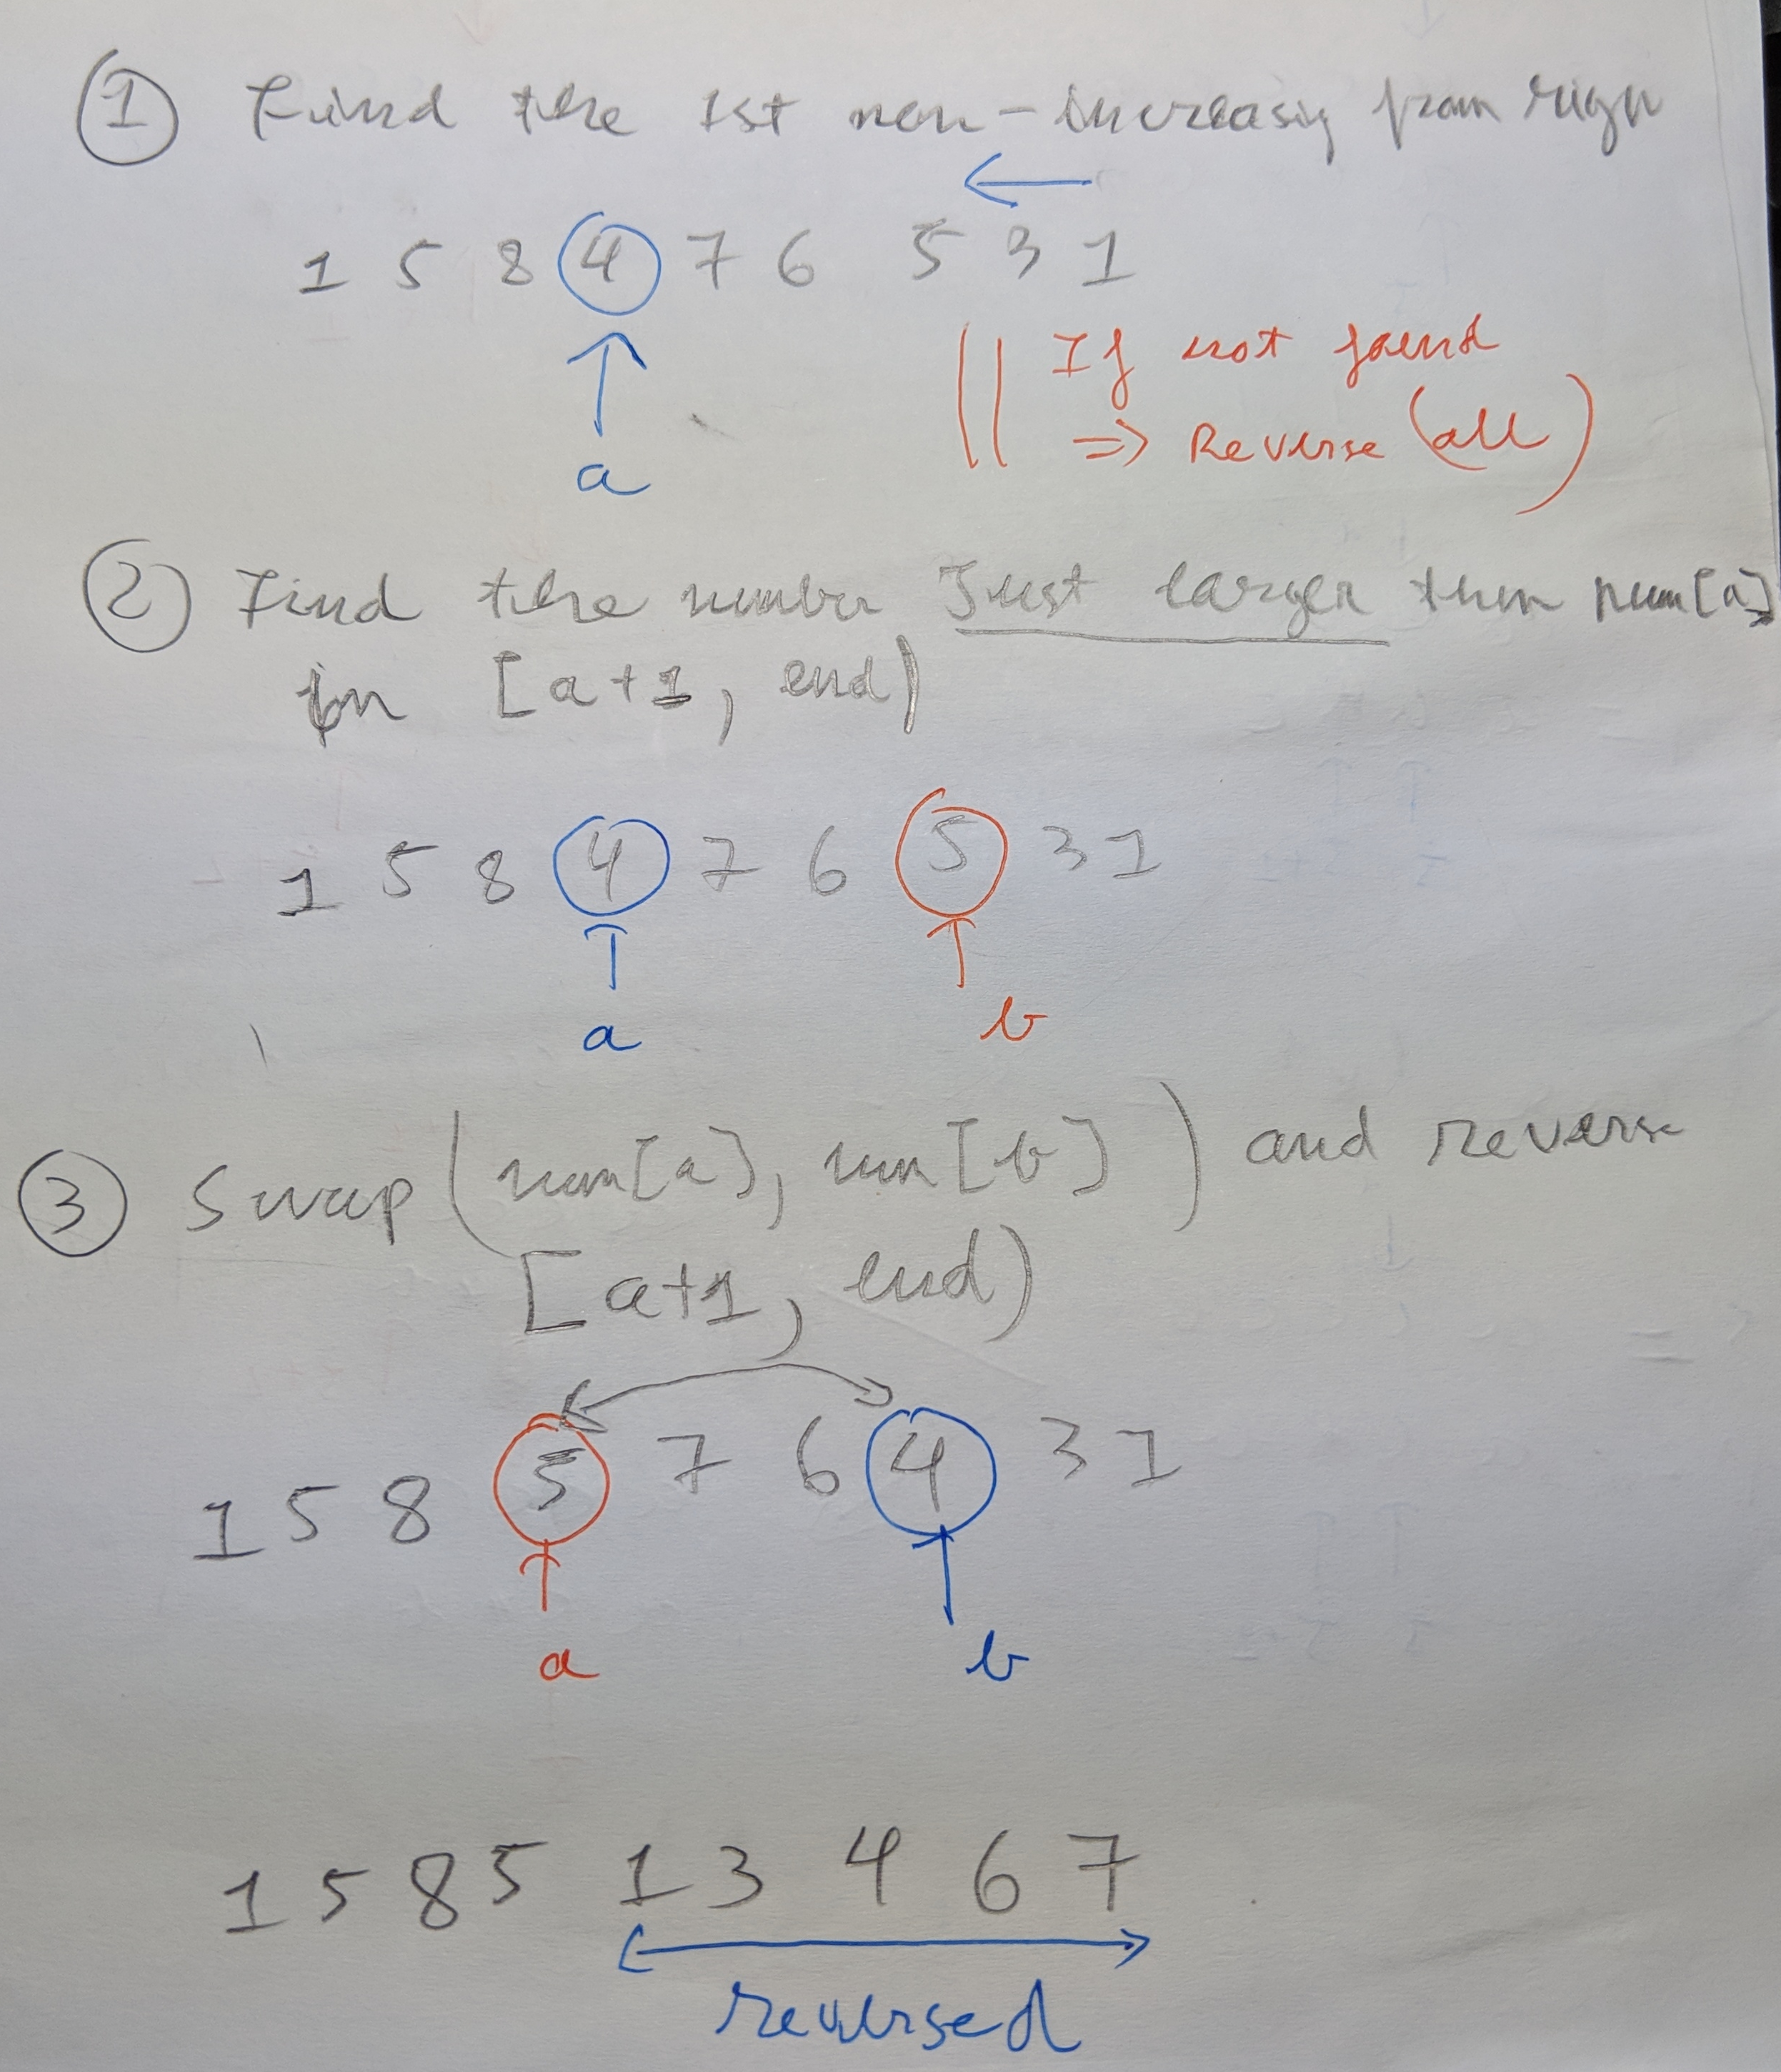 ① Find the 1st non-increasing from righ
1 5 8 4 7 6 5 3 1
If not found
=> Reverse (all)
a
② Find the number Just larger then num[a]
in [a+1, end)
1 5 8 4 7 6 5 3 1
a b
③ Swap (num[a], num[b]) and reverse
[a+1, end)
1 5 8 5 7 6 4 3 1
a b
1 5 8 5 1 3 4 6 7
reversed